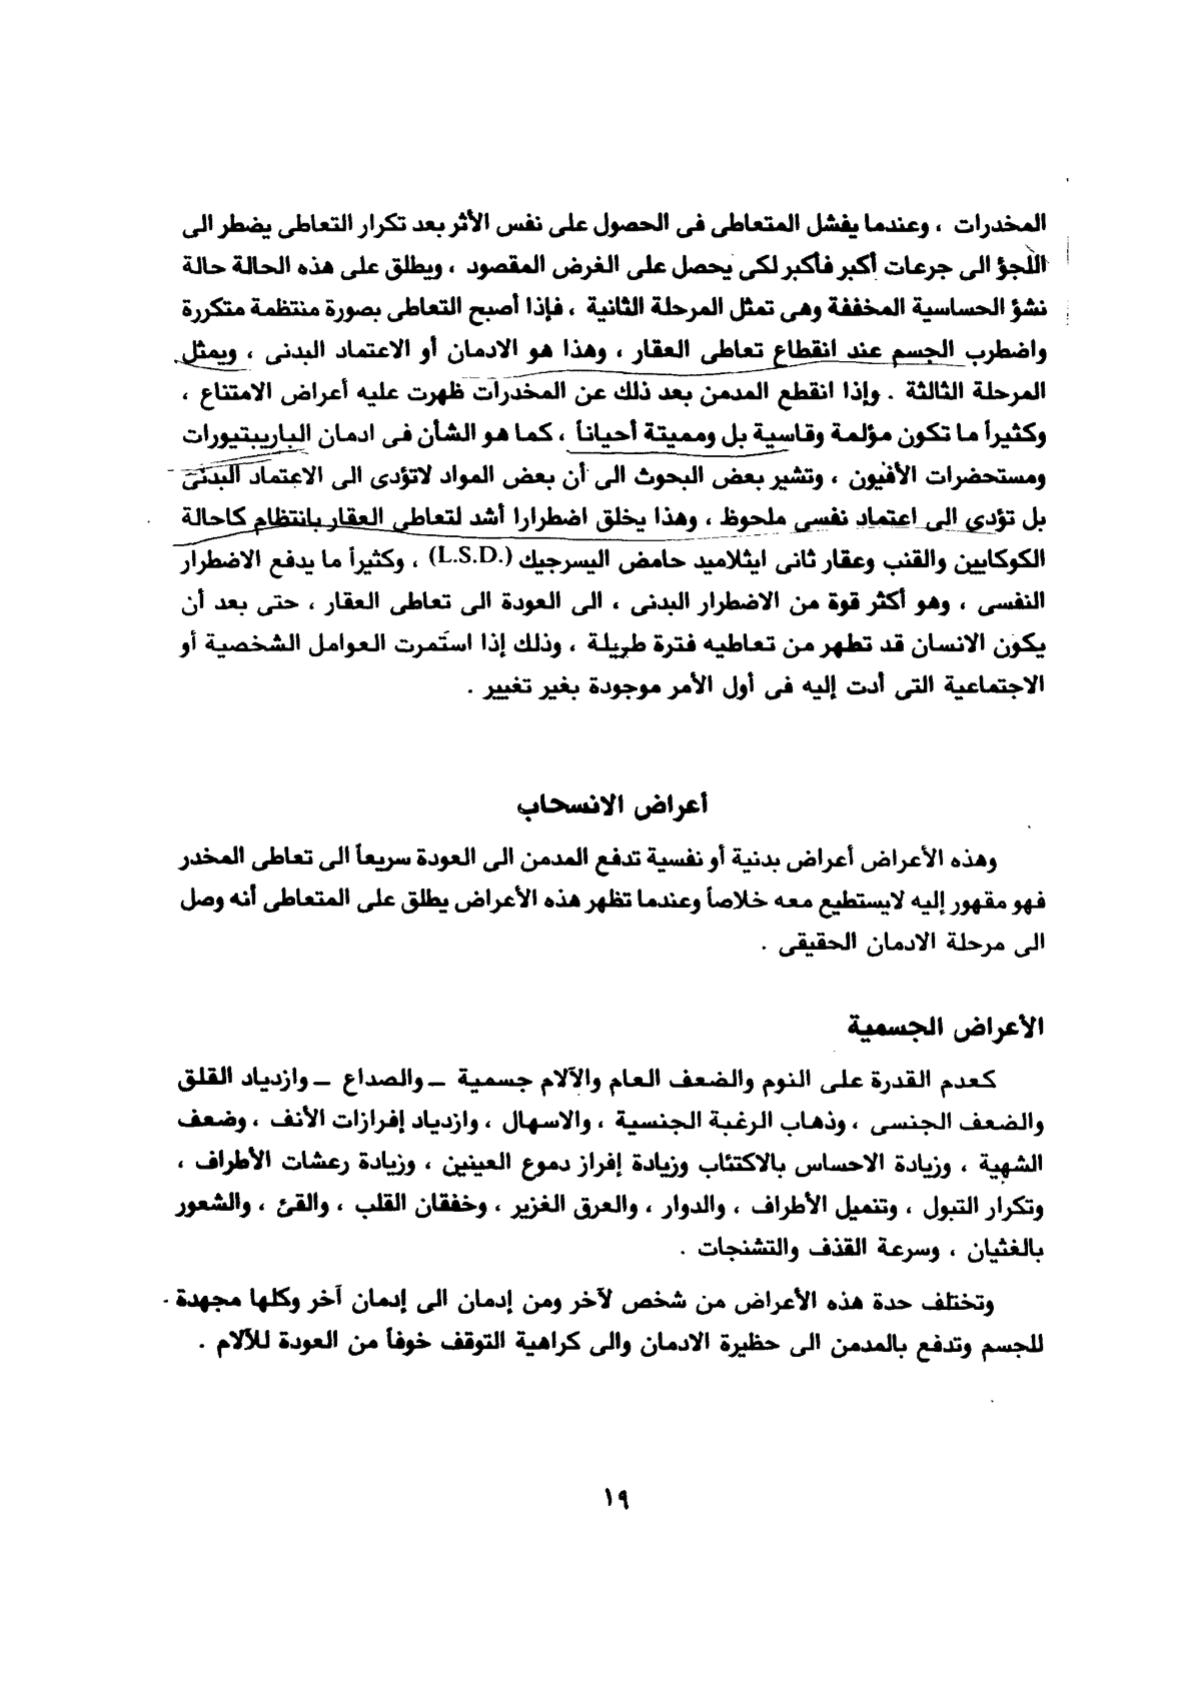 المخدرات ، وعندما يفشل المتعاطى فى الحصول على نفس الأثر بعد تكرار التعاطى يضطر الى
اللجؤ الى جرعات أكبر فأكبر لكى يحصل على الغرض المقصود ، ويطلق على هذه الحالة حالة
نشؤ الحساسية المخففة وهى تمثل المرحلة الثانية ، فإذا أصبح التعاطى بصورة منتظمة متكررة
واضطرب الجسم عند انقطاع تعاطى العقار ، وهذا هو الادمان أو الاعتماد البدنى ، ويمثل
المرحلة الثالثة . وإذا انقطع المدمن بعد ذلك عن المخدرات ظهرت عليه أعراض الامتناع ،
وكثيراً ما تكون مؤلمة وقاسية بل ومميتة أحياناً ، كما هو الشأن فى ادمان الباربيتيورات
ومستحضرات الأفيون ، وتشير بعض البحوث الى أن بعض المواد لاتؤدى الى الاعتماد البدنى
بل تؤدى الى اعتماد نفسى ملحوظ ، وهذا يخلق اضطرارا أشد لتعاطى العقار بانتظام كاحالة
الكوكايين والقنب وعقار ثانى ايثلاميد حامض اليسرجيك (L.S.D.) ، وكثيراً ما يدفع الاضطرار
النفسى ، وهو أكثر قوة من الاضطرار البدنى ، الى العودة الى تعاطى العقار ، حتى بعد أن
يكون الانسان قد تطهر من تعاطيه فترة طريلة ، وذلك إذا استمرت العوامل الشخصية أو
الاجتماعية التى أدت إليه فى أول الأمر موجودة بغير تغيير .
أعراض الانسحاب
وهذه الأعراض أعراض بدنية أو نفسية تدفع المدمن الى العودة سريعاً الى تعاطى المخدر
فهو مقهور إليه لايستطيع معه خلاصاً وعندما تظهر هذه الأعراض يطلق على المتعاطى أنه وصل
الى مرحلة الادمان الحقيقى .
الأعراض الجسمية
كعدم القدرة على النوم والضعف العام والآلام جسمية ــ والصداع ــ وازدياد القلق
والضعف الجنسى ، وذهاب الرغبة الجنسية ، والاسهال ، وازدياد إفرازات الأنف ، وضعف
الشهية ، وزيادة الاحساس بالاكتئاب وزيادة إفراز دموع العينين ، وزيادة رعشات الأطراف ،
وتكرار التبول ، وتنميل الأطراف ، والدوار ، والعرق الغزير ، وخفقان القلب ، والقئ ، والشعور
بالغثيان ، وسرعة القذف والتشنجات .
وتختلف حدة هذه الأعراض من شخص لآخر ومن إدمان الى إدمان آخر وكلها مجهدة
للجسم وتدفع بالمدمن الى حظيرة الادمان والى كراهية التوقف خوفاً من العودة للآلام .
١٩